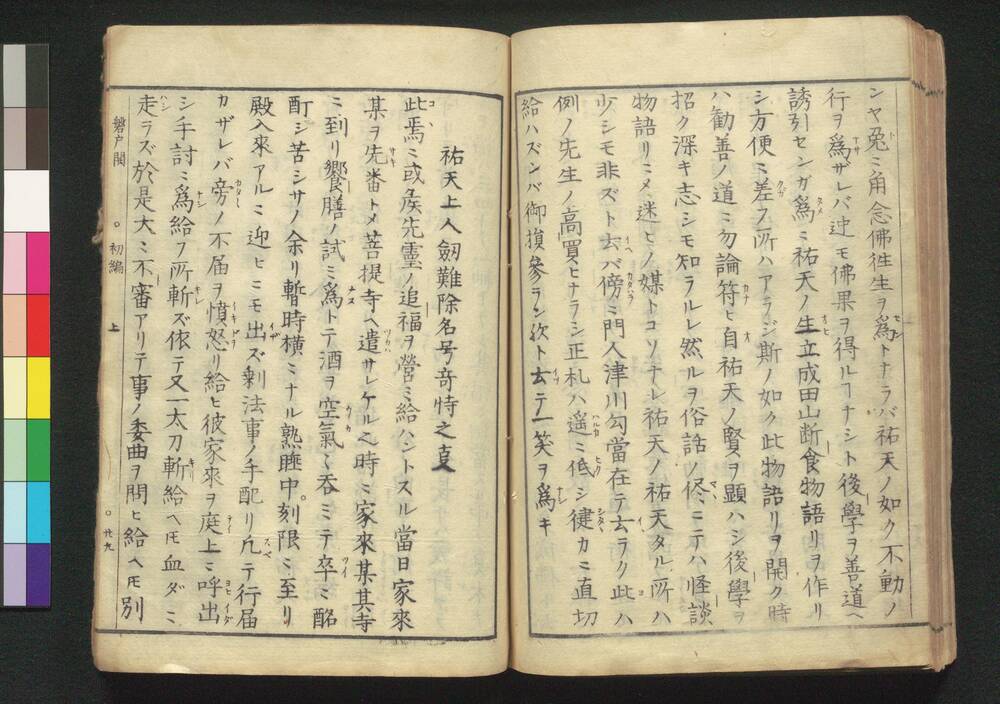 ンヤ兎ニ角念佛徃生ヲ爲トナラバ祐天ノ如ク不動ノ
行ヲ爲ザレバ迚モ佛果ヲ得ルヿナシト後學ヲ善道ヘ
誘引センガ爲ニ祐天ノ生立成田山断食物語リヲ作リ
シ方便ニ差フ所ハアラジ斯ノ如ク此物語リヲ開ク時
ハ勧善ノ道ニ勿論符ヒ自祐天ノ賢ヲ顯ハシ後學ヲ
招ク深キ志シモ知ラルレ然ルヲ俗話ノ侭ニテハ怪談
物語リニメ迷ヒノ媒トコソナレ祐天ノ祐天タル所ハ
少シモ非ズト云バ傍ニ門人津川勾當在テ云ラク此ハ
例ノ先生ノ高買ヒナラシ正札ハ遥ニ低シ健カニ直切
給ハズンバ御損參ラン欤ト云テ一笑ヲ爲キ
祐天上人劔難除名号奇特之叓
此焉ニ或矦先靈ノ追福ヲ營ミ給ハントスル當日家來
某ヲ先番トメ菩提寺ヘ遣サレケル之時ニ家來某其寺
ニ到リ饗膳ノ試ミ爲トテ酒ヲ空氣〻呑ミテ卒ニ酩
酊シ苦シサノ余リ暫時横ミナル熟睡中刻限ニ至リ
殿入來アルニ迎ヒニモ出ズ剰法事ノ手配リ凡テ行届
カザレバ旁ノ不届ヲ憤怒リ給ヒ彼家來ヲ庭上ニ呼出
シ手討ニ爲給フ所斬ズ依テ又一太刀斬給ヘ𪜈血ダニ
走ラズ於是大ニ不審アリテ事ノ委曲ヲ問ヒ給ヘ𪜈別
磐戸開 ○初編 上 ○廿九